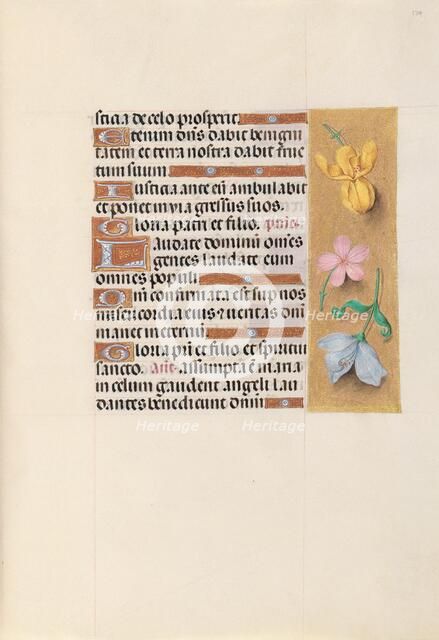 sticia de celo prosperit.
Etenim dns dabit benigni
tatem et terra nostra dabit fruc
tum suum
Iusticia ante eū ambulabit
et ponet in via gressus suos.
Gloria patri et filio. psus.
Laudate dominū om̄es
gentes laudate eum
omnes populi
Qm̄ confirmata est sup nos
misericordia eius et veritas dnī
manet in eternū
Gloria pri et filio et spiritui
sancto. Ant. Assumpta ē maria
in celum gaudent angeli lau
dantes benedicunt dnm̄
Heritage Heritage
Heritage Heritage